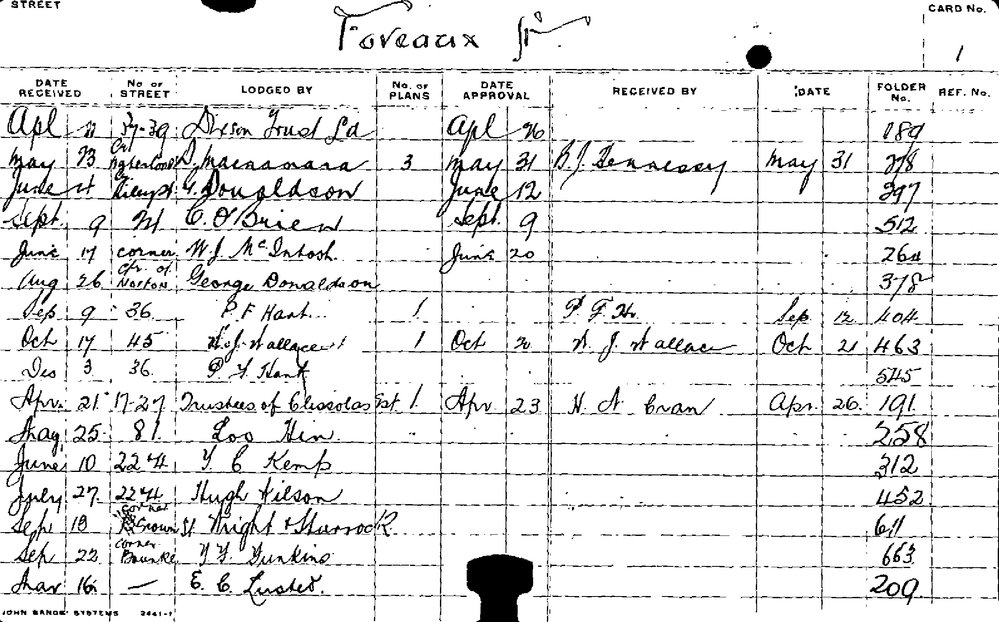 STREET
CARD No.
Foveaux St.
1
DATE RECEIVED No OF STREET LODGED BY No. OF PLANS DATE APPROVAL RECEIVED BY DATE FOLDER No. REF. No.
Apl 11 37-39 Dixon Trust Ld Apl 26 189
May 23 D. Macnamara 3 May 31 B. J. Hennessy May 31 278
June 4 G. Donaldson June 12 297
Sept. 9 21 C. O'Brien Sept. 9 512
June 17 corner W. J. McIntosh June 20 264
Aug 26 cnr. of Norton George Donaldson 378
Sep 9 36 P F Hart 1 P F H. Sep 12 404
Oct 17 45 W. J. Wallace 1 Oct 20 W. J. Wallace Oct 21 463
Dec 3 36. P F Hart 545
Apr. 21 17-27 Trustees of Est 1. Apr 23 H. A Cran Apr. 26. 191
May 25. 81. Loo Hin. 258
June 10 224 Y. C Kemp 312
July 27. 224 Hugh Wilson 452
Sep 13 corner Crown St. Wright & Sturrock. 611
Sep 22 corner Bourke 663
Mar 16. — E. C. Lusted. 209
JOHN SANDS SYSTEMS 2441-1